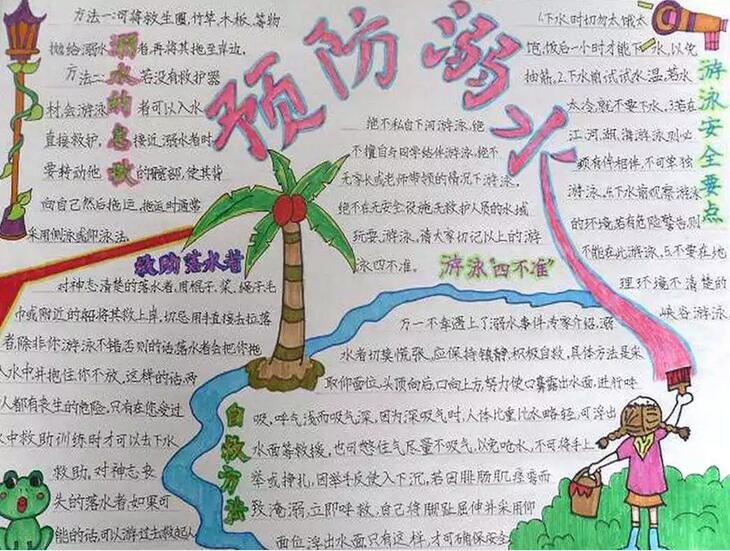 预防溺水
溺水的急救
方法一:河将救生圈、竹竿、木板、等物
抛给溺水者,再将其拖至岸边.
方法二:若没有救护器
材会游泳者可以入水
直接救护,接近溺水者时
要转动他的髋部,使其背
向自己然后拖运,拖运时通常
采用侧泳或仰泳法.
救助落水者
对神志清楚的落水者,用棍子、桨、绳子毛
巾或附近的船将其救上岸,切忌用手直接去拉落
者,除非你游泳不错否则的话,落水者会把你拖
入水中并抱住你不放,这样的话,两
人都有丧生的危险,只有在您受过
水中救助训练时才可以去下水
救助.对神志丧
失的落水者,如果可
能的话,可以游过去救起人
绝不私自下河游泳,绝
不擅自与同学结伴游泳,绝不
无家长或老师带领的情况下游泳,
绝不在无安全设施,无救护人员的水域
玩耍、游泳,请大家切记以上的游
泳四不准.
游泳"四不准"
游泳安全要点
1.下水时切勿太饿太
饱,饭后一个时才能下水,以免
抽筋,2.下水前试试水温,若水
太冷,就不要下水,3.若在
江、河、湖、海游泳,则必
须有伴相伴,不可单独
游泳,4.下水前观察游泳
的环境,若有危险警告,则
不能在此游泳,5.不要在地
理环境不清楚的
峡谷游泳.
自救方法
万一不幸遇上了溺水事件专家介绍,溺
水者切莫慌张,应保持镇静,积极自救,具体方法是采
取仰面位,头顶向后,口向上方,努力使口鼻露出水面,进行呼
吸,呼气浅而吸气深,因为深吸气时,人体比重比水略轻,可浮出
水面等救援,也可憋住气尽量不吸气,以免呛水,不可将手上
举或挣扎,因举手反使人下沉,若因腓肠肌痉挛而
致淹溺,立即呼救,自己将脚趾屈伸并采用仰
面位浮出水面,只有这样,才可确保安全